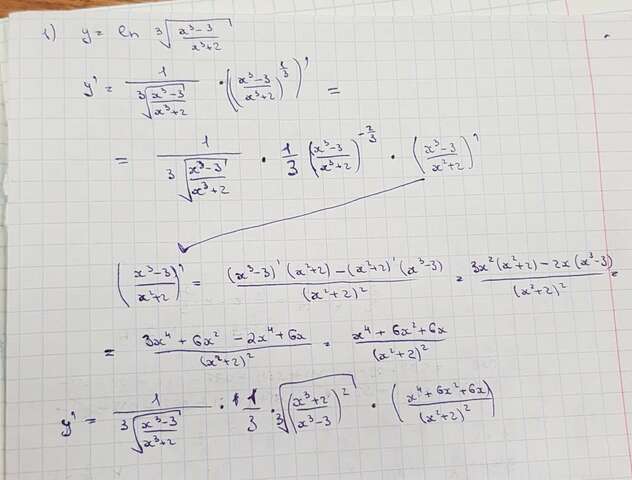 1) y = ln ∛((x³-3)/(x³+2))
y' = 1/∛((x³-3)/(x³+2)) · (((x³-3)/(x³+2))^(1/3))' =
= 1/∛((x³-3)/(x³+2)) · 1/3 ((x³-3)/(x³+2))^(-2/3) · ((x³-3)/(x²+2))'
((x³-3)/(x²+2))' = ((x³-3)'(x²+2)-(x²+2)'(x³-3))/(x²+2)² = (3x²(x²+2)-2x(x³-3))/(x²+2)² =
= (3x⁴+6x²-2x⁴+6x)/(x²+2)² = (x⁴+6x²+6x)/(x²+2)²
y' = 1/∛((x³-3)/(x³+2)) · 1/3 · ∛(((x³+2)/(x³-3))²) · ((x⁴+6x²+6x)/(x²+2)²)